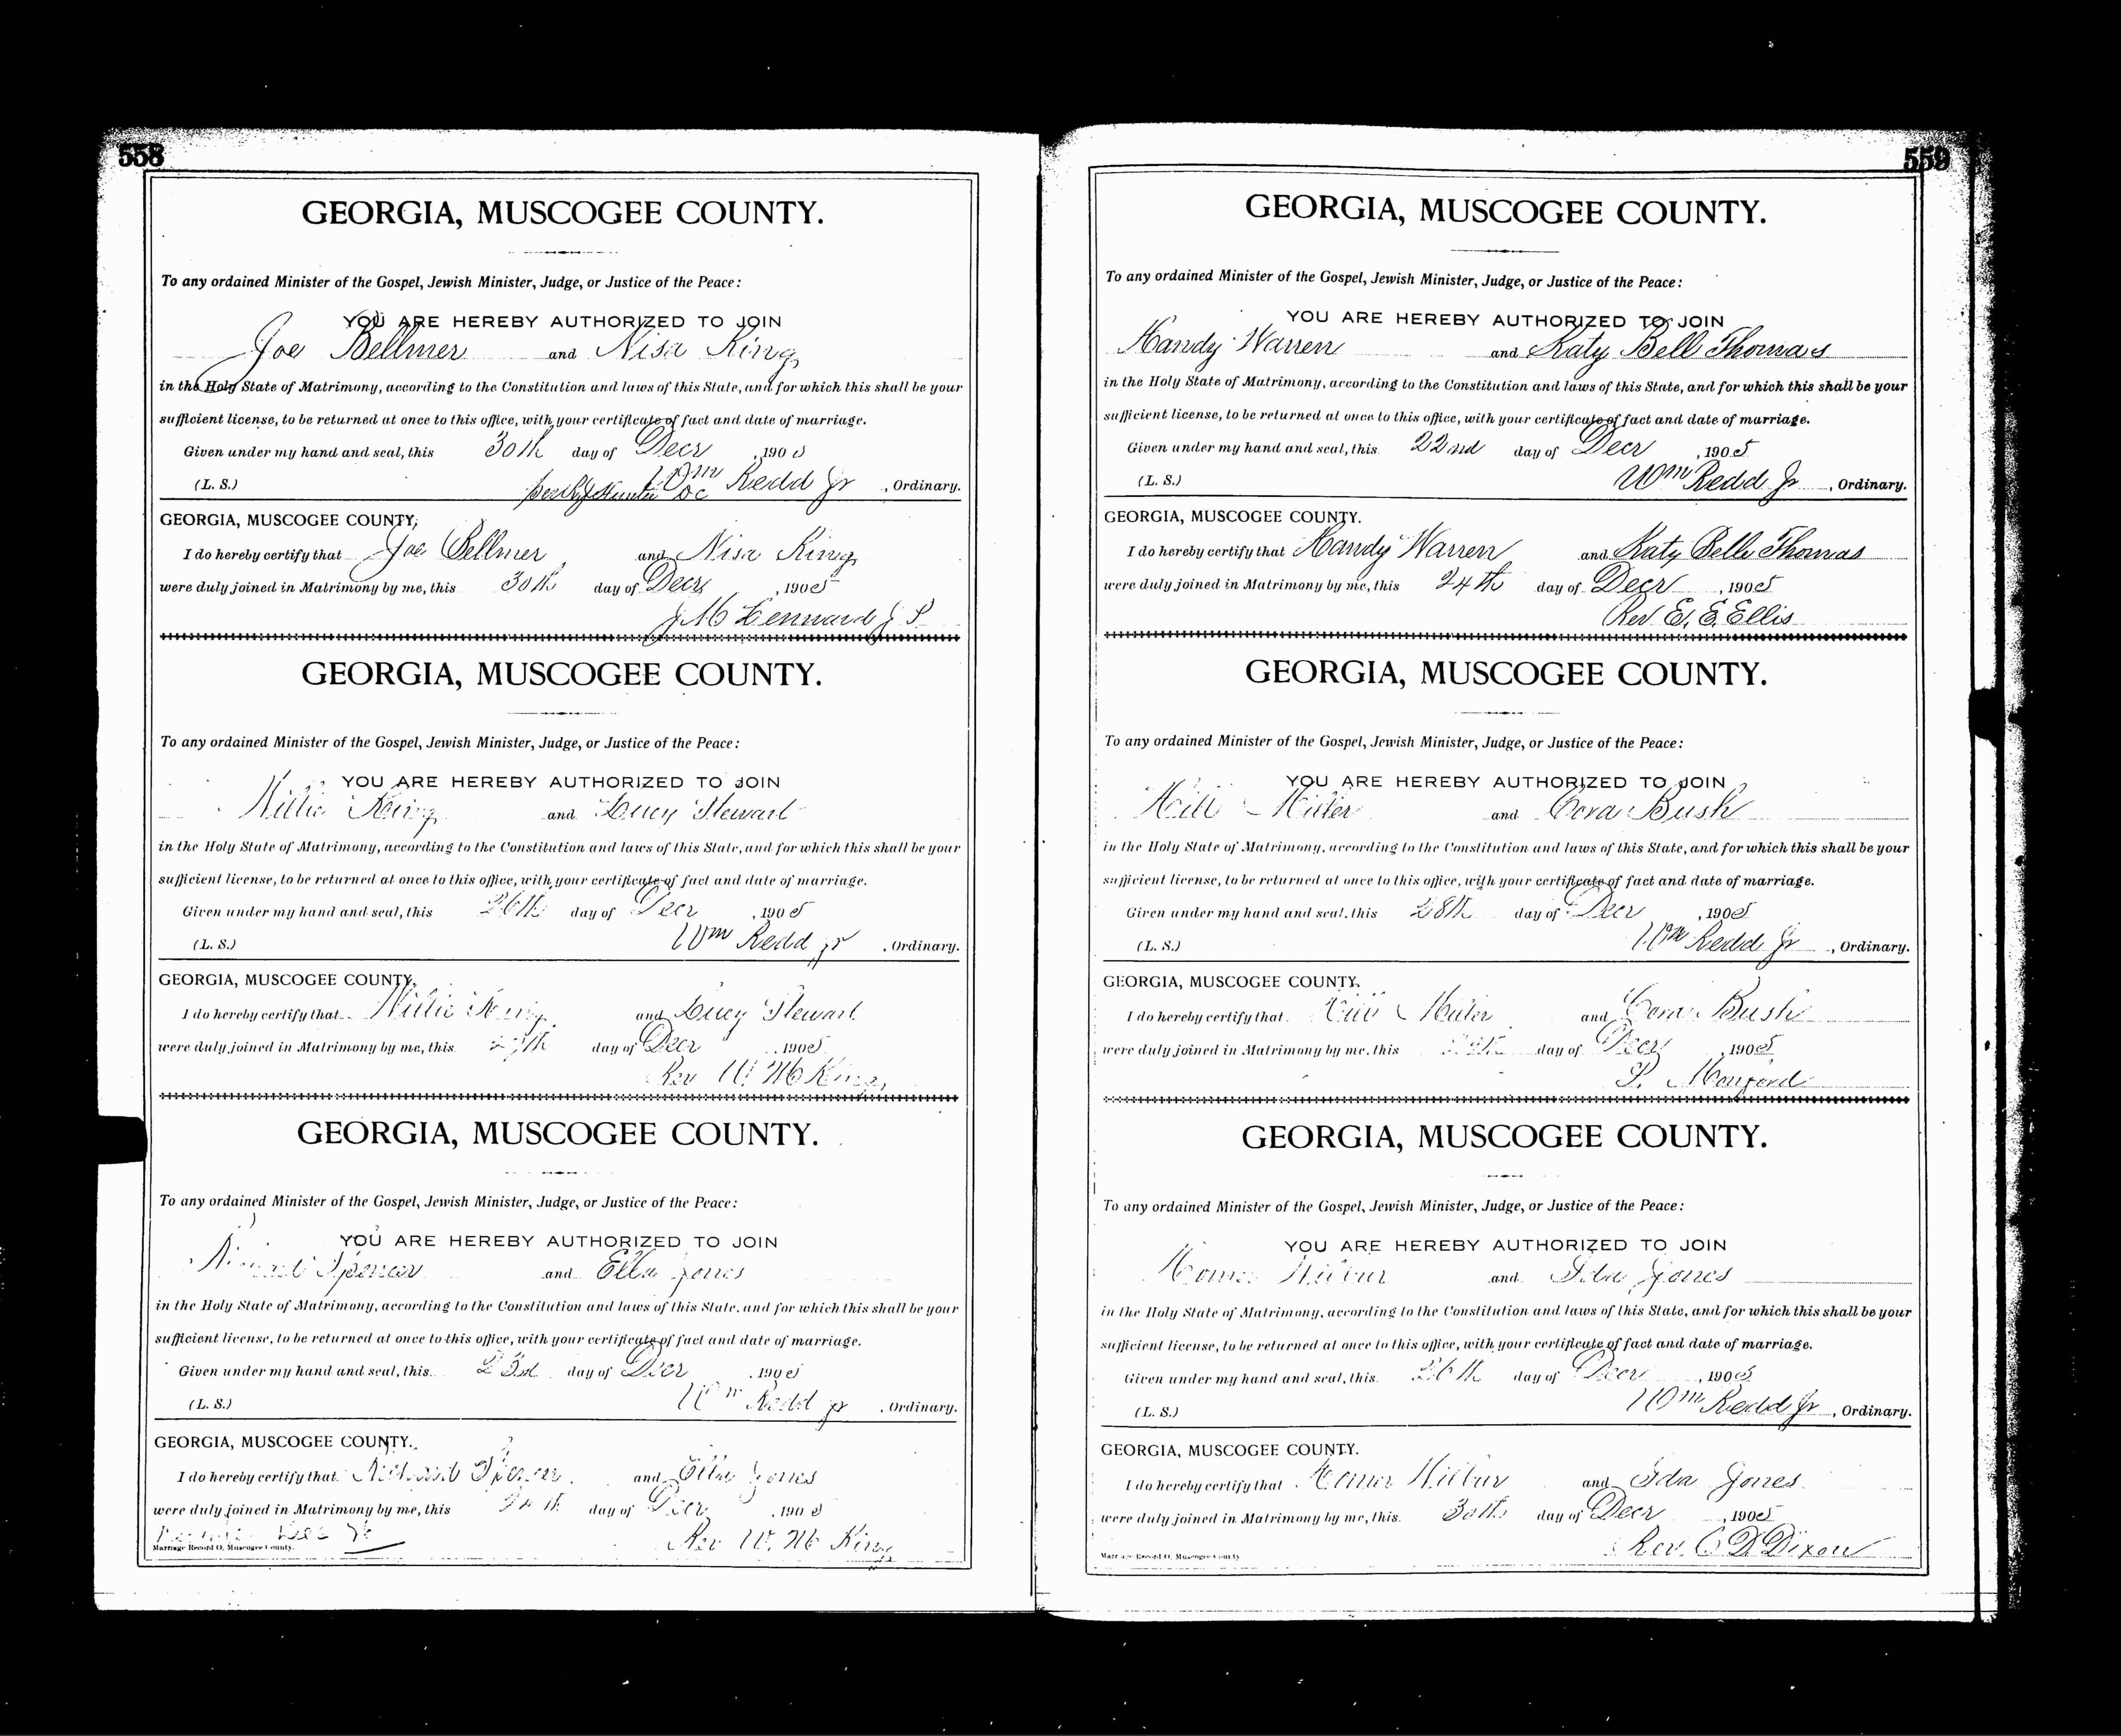 558
GEORGIA, MUSCOGEE COUNTY.
To any ordained Minister of the Gospel, Jewish Minister, Judge, or Justice of the Peace:
YOU ARE HEREBY AUTHORIZED TO JOIN
Joe Bellmer and Nisa King
in the Holy State of Matrimony, according to the Constitution and laws of this State, and for which this shall be your
sufficient license, to be returned at once to this office, with your certificate of fact and date of marriage.
Given under my hand and seal, this 30th day of Decr , 1905
(L. S.) Wm Redd Jr , Ordinary.
GEORGIA, MUSCOGEE COUNTY,
I do hereby certify that Joe Bellmer and Nisa King
were duly joined in Matrimony by me, this 30th day of Decr , 1905
J M Lennard J P
GEORGIA, MUSCOGEE COUNTY.
To any ordained Minister of the Gospel, Jewish Minister, Judge, or Justice of the Peace:
YOU ARE HEREBY AUTHORIZED TO JOIN
Willie King and Lucy Stewart
in the Holy State of Matrimony, according to the Constitution and laws of this State, and for which this shall be your
sufficient license, to be returned at once to this office, with your certificate of fact and date of marriage.
Given under my hand and seal, this 26th day of Decr , 1905
(L. S.) Wm Redd Jr , Ordinary.
GEORGIA, MUSCOGEE COUNTY,
I do hereby certify that Willie King and Lucy Stewart
were duly joined in Matrimony by me, this day of Decr , 1905
Rev W. M King
GEORGIA, MUSCOGEE COUNTY.
To any ordained Minister of the Gospel, Jewish Minister, Judge, or Justice of the Peace:
YOU ARE HEREBY AUTHORIZED TO JOIN
Richard Spencer and Ella Jones
in the Holy State of Matrimony, according to the Constitution and laws of this State, and for which this shall be your
sufficient license, to be returned at once to this office, with your certificate of fact and date of marriage.
Given under my hand and seal, this 23d day of Decr , 1905
(L. S.) Wm Redd Jr , Ordinary.
GEORGIA, MUSCOGEE COUNTY.
I do hereby certify that Richard Spencer and Ella Jones
were duly joined in Matrimony by me, this 24th day of Decr , 1905
Rev W. M King
Marriage Record O, Muscogee County.
559
GEORGIA, MUSCOGEE COUNTY.
To any ordained Minister of the Gospel, Jewish Minister, Judge, or Justice of the Peace:
YOU ARE HEREBY AUTHORIZED TO JOIN
Handy Warren and Katy Bell Thomas
in the Holy State of Matrimony, according to the Constitution and laws of this State, and for which this shall be your
sufficient license, to be returned at once to this office, with your certificate of fact and date of marriage.
Given under my hand and seal, this 22nd day of Decr , 1905
(L. S.) Wm Redd Jr , Ordinary.
GEORGIA, MUSCOGEE COUNTY.
I do hereby certify that Handy Warren and Katy Belle Thomas
were duly joined in Matrimony by me, this 24th day of Decr , 1905
Rev E. E. Ellis
GEORGIA, MUSCOGEE COUNTY.
To any ordained Minister of the Gospel, Jewish Minister, Judge, or Justice of the Peace:
YOU ARE HEREBY AUTHORIZED TO JOIN
Will and Cora Bush
in the Holy State of Matrimony, according to the Constitution and laws of this State, and for which this shall be your
sufficient license, to be returned at once to this office, with your certificate of fact and date of marriage.
Given under my hand and seal, this 28th day of Decr , 1905
(L. S.) Wm Redd Jr , Ordinary.
GEORGIA, MUSCOGEE COUNTY.
I do hereby certify that Will and Cora Bush
were duly joined in Matrimony by me, this day of Decr , 1905
P.
GEORGIA, MUSCOGEE COUNTY.
To any ordained Minister of the Gospel, Jewish Minister, Judge, or Justice of the Peace:
YOU ARE HEREBY AUTHORIZED TO JOIN
Homer Wilbur and Ida Jones
in the Holy State of Matrimony, according to the Constitution and laws of this State, and for which this shall be your
sufficient license, to be returned at once to this office, with your certificate of fact and date of marriage.
Given under my hand and seal, this 26th day of Decr , 1905
(L. S.) Wm Redd Jr , Ordinary.
GEORGIA, MUSCOGEE COUNTY.
I do hereby certify that Homer Wilbur and Ida Jones
were duly joined in Matrimony by me, this 30th day of Decr , 1905
Rev. C D Dixon
Marriage Record O, Muscogee County